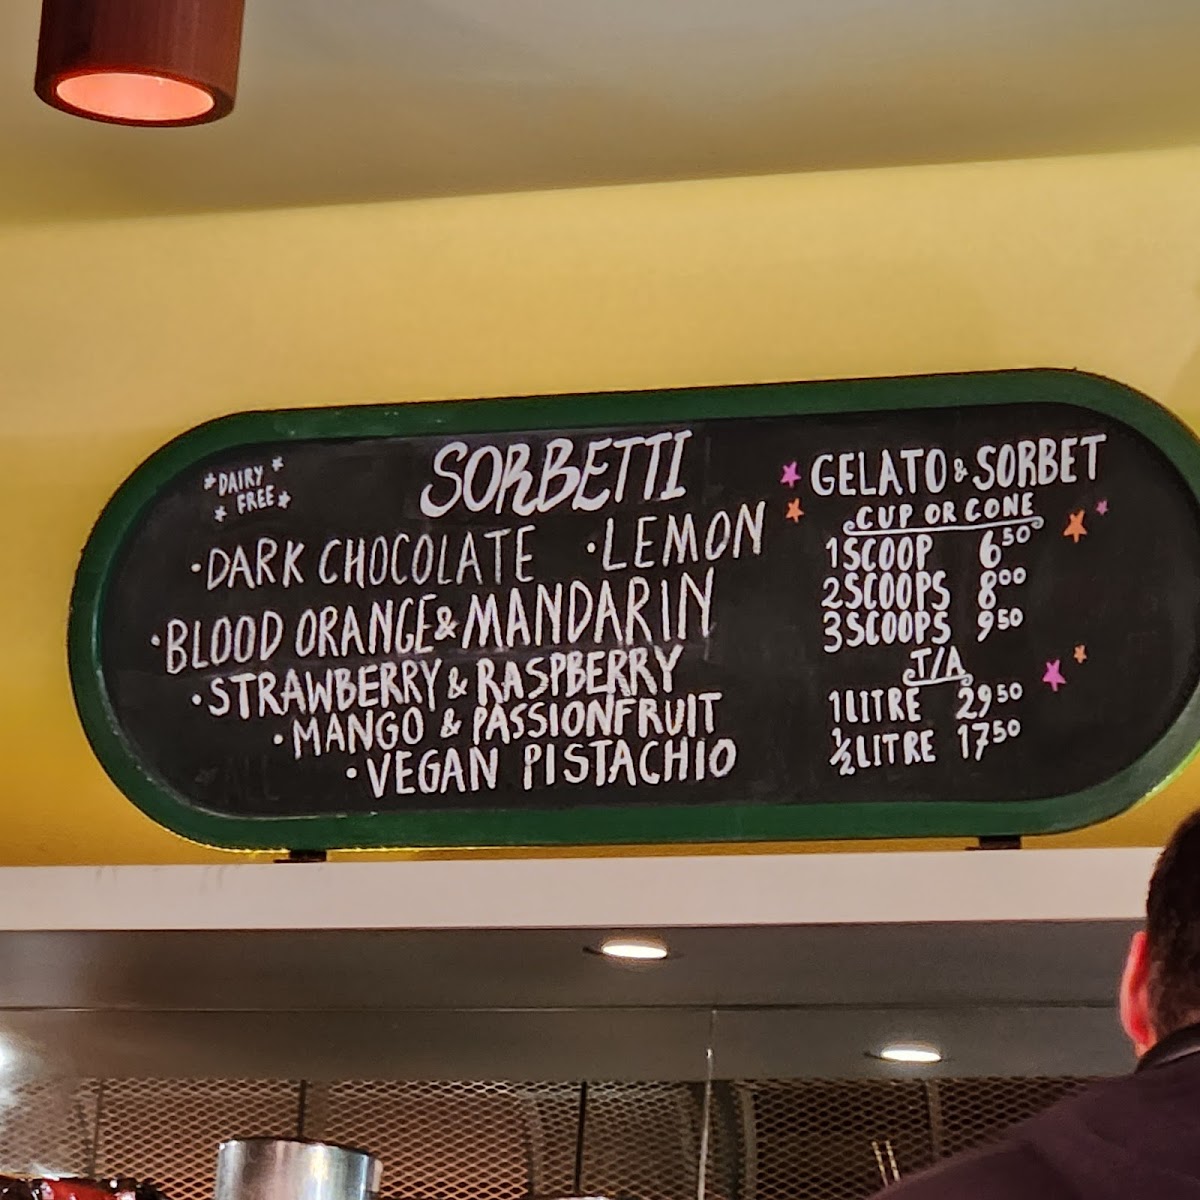 *DAIRY*
*FREE*
SORBETTI
·DARK CHOCOLATE ·LEMON
·BLOOD ORANGE & MANDARIN
·STRAWBERRY & RASPBERRY
·MANGO & PASSIONFRUIT
·VEGAN PISTACHIO
GELATO & SORBET
CUP OR CONE
1 SCOOP 6⁵⁰
2 SCOOPS 8⁰⁰
3 SCOOPS 9⁵⁰
T/A
1 LITRE 29⁵⁰
½ LITRE 17⁵⁰